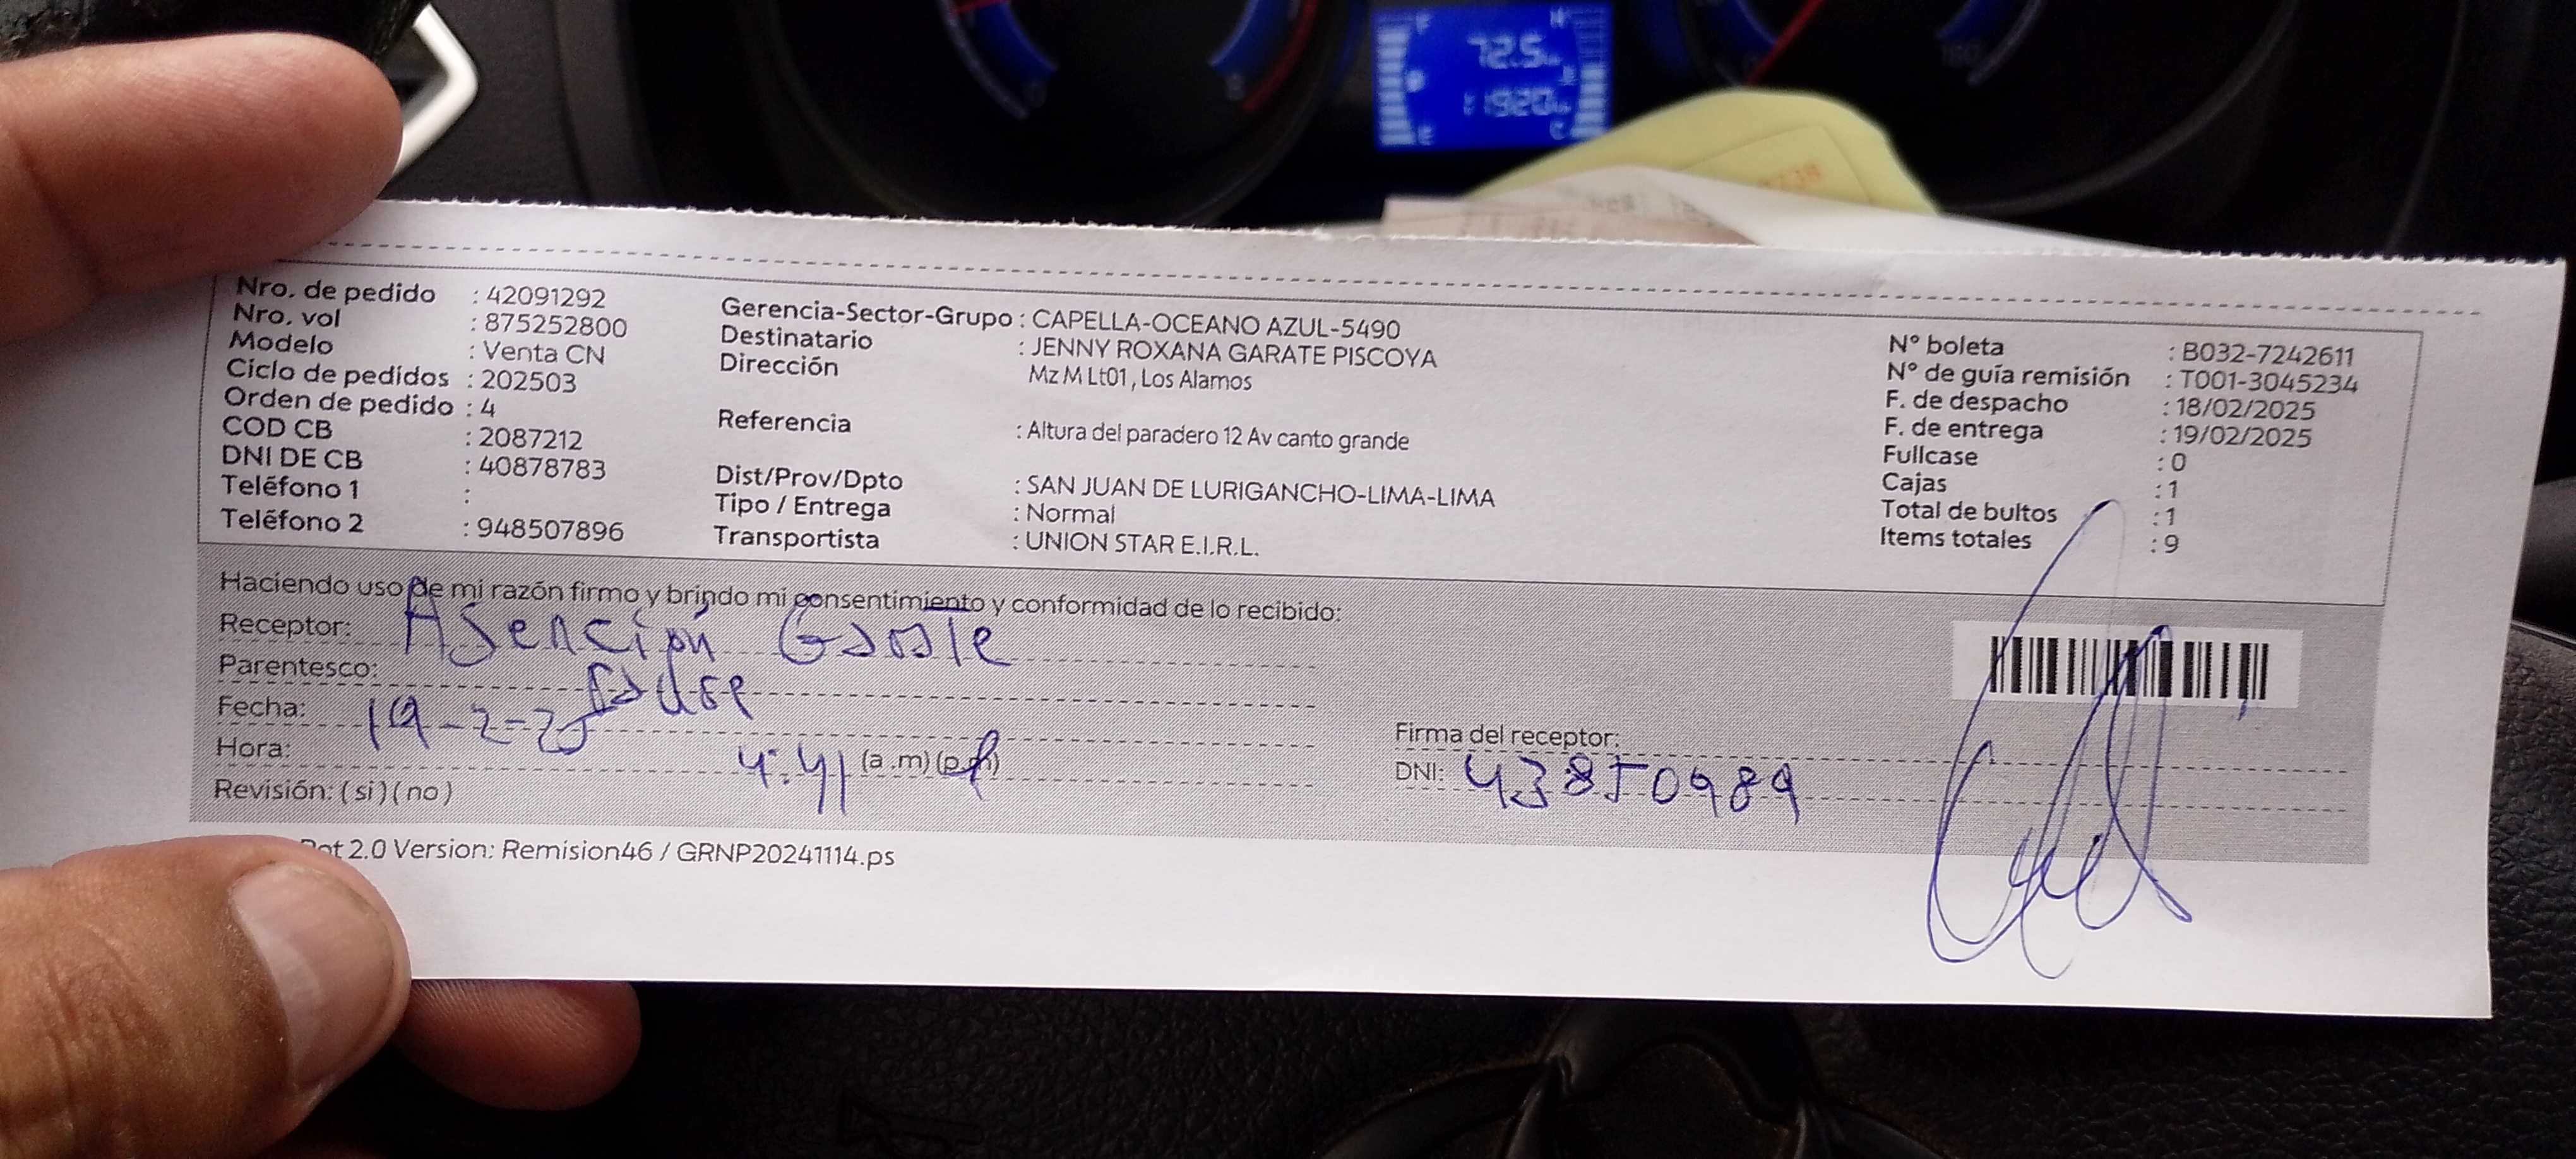 72.5
11920
Nro. de pedido : 42091292
Nro. vol : 875252800
Modelo : Venta CN
Ciclo de pedidos : 202503
Orden de pedido : 4
COD CB : 2087212
DNI DE CB : 40878783
Teléfono 1 :
Teléfono 2 : 948507896
Gerencia-Sector-Grupo : CAPELLA-OCEANO AZUL-5490
Destinatario : JENNY ROXANA GARATE PISCOYA
Dirección Mz M Lt01, Los Alamos
Referencia : Altura del paradero 12 Av canto grande
Dist/Prov/Dpto : SAN JUAN DE LURIGANCHO-LIMA-LIMA
Tipo / Entrega : Normal
Transportista : UNION STAR E.I.R.L.
N° boleta : B032-7242611
N° de guía remisión : T001-3045234
F. de despacho : 18/02/2025
F. de entrega : 19/02/2025
Fullcase : 0
Cajas : 1
Total de bultos : 1
Items totales : 9
Haciendo uso de mi razón firmo y brindo mi consentimiento y conformidad de lo recibido:
Receptor: Asención
Parentesco:
Fecha: 19-2-25
Hora: 4:41 (a.m) (p.m)
Revisión: (si) (no)
Firma del receptor:
DNI: 43850989
2.0 Version: Remision46 / GRNP20241114.ps